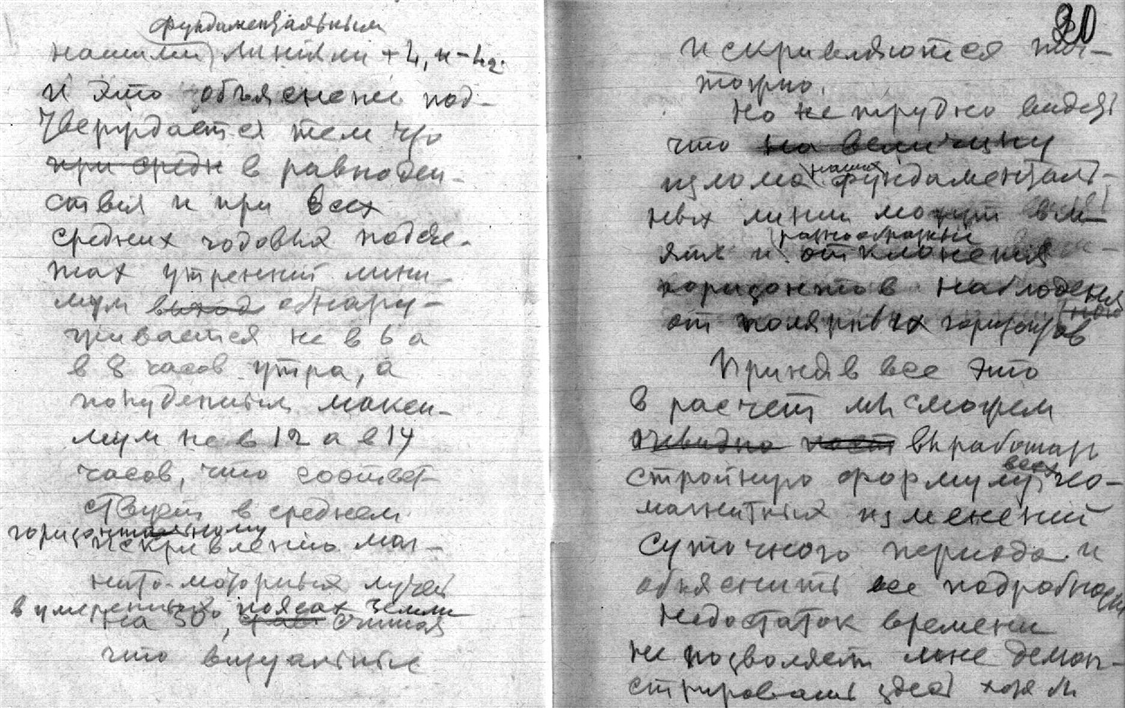 фундаментальным
нашими линиям +h, и -h2.
И это объяснение под-
тверждается тем что
при средн в равноден-
ствия и при всех
средних годовых подсче-
тах утренний мини-
мум выход обнару-
живается не в 6 а
в 8 часов утра, а
полуденный макси-
мум не в 12 а в 14
часов, что соответ-
ствует в среднем
горизонтальному
искривлению маг-
нито-моторных лучей
в умеренных поясах Земли
на 30°, считая
что визуальные
30
искривляются ни-
чтожно.
Но не трудно видеть
что на величину
излома наших фундаменталь-
ных линий могут вли-
разнообразные
ять и отклонения
горизонтов наблюдения
от полярных горизонтов
Приняв все это
в расчет мы сможем
очевидно выработать
всех
стройную формулу гео-
магнитных изменений
суточного периода и
объяснить все подробности
Недостаток времени
не позволяет мне демон-
стрировать здесь хотя бы